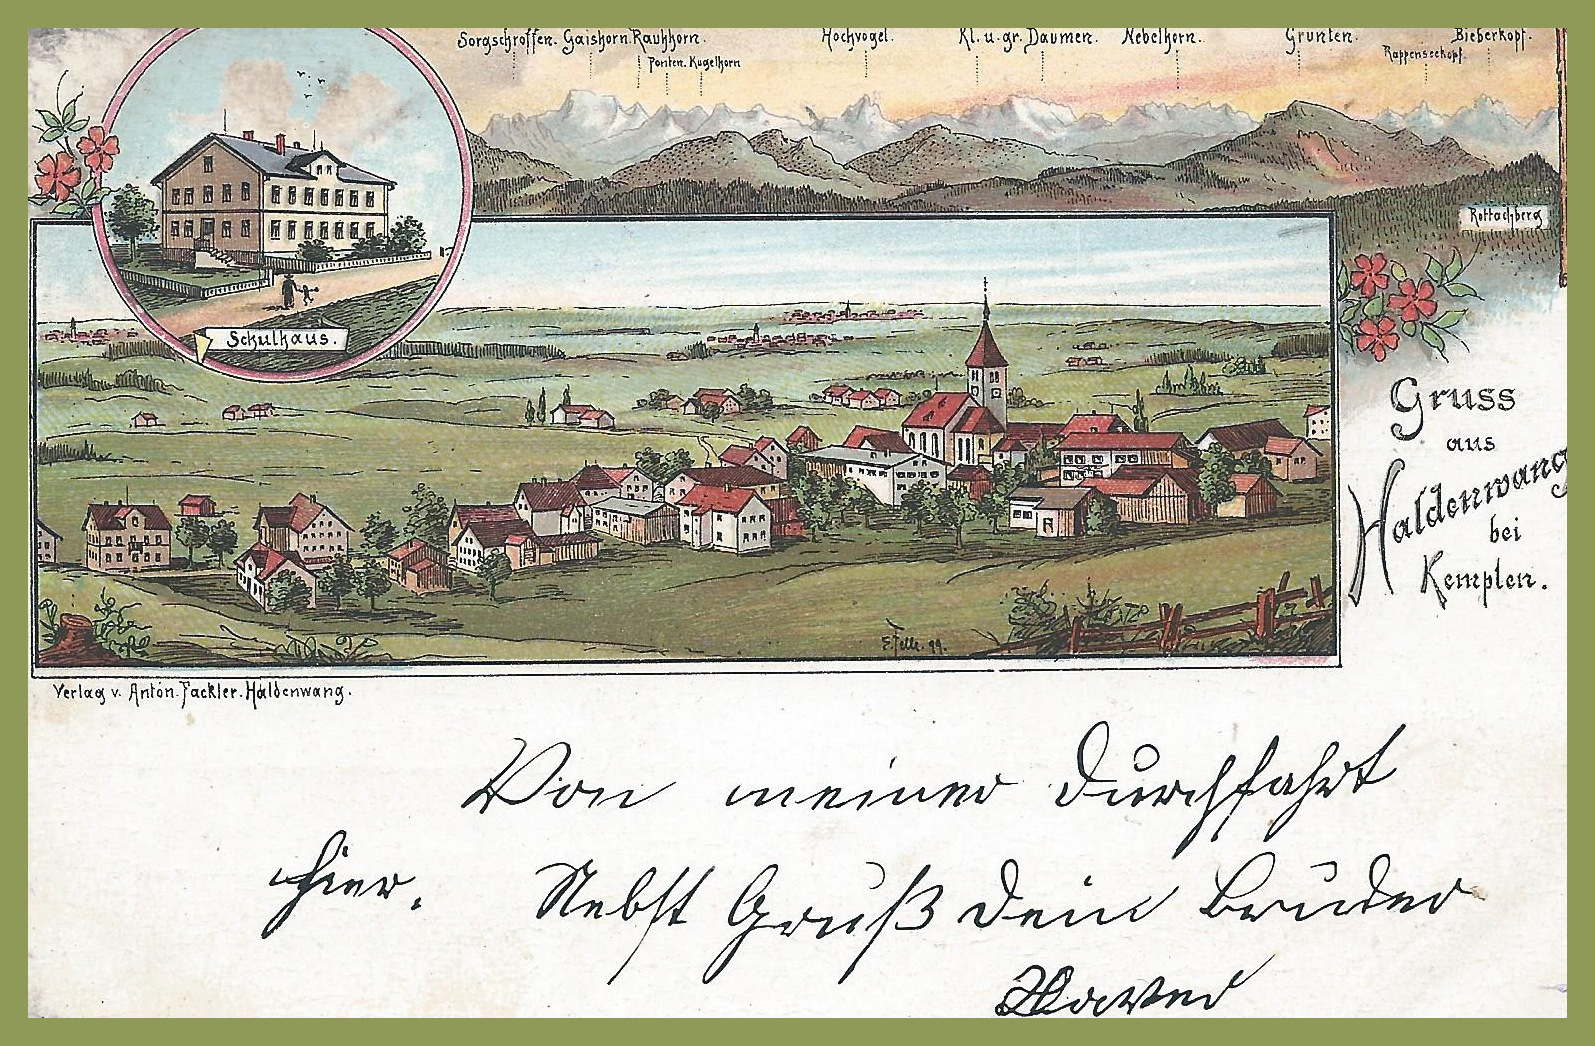 Sorgschroffen. Gaishorn. Rauhhorn. Hochvogel. Kl. u. gr. Daumen. Nebelhorn. Grünten. Bieberkopf.
Ponten. Kugelhorn Rappenseekopf.
Rottachberg
Schulhaus.
Gruss
aus
Haldenwang
bei
Kempten.
E. Felle. 99.
Verlag v. Anton. Fackler. Haldenwang.
Von meiner Durchfahrt
hier. Nebst Gruß dein Bruder
Xaver